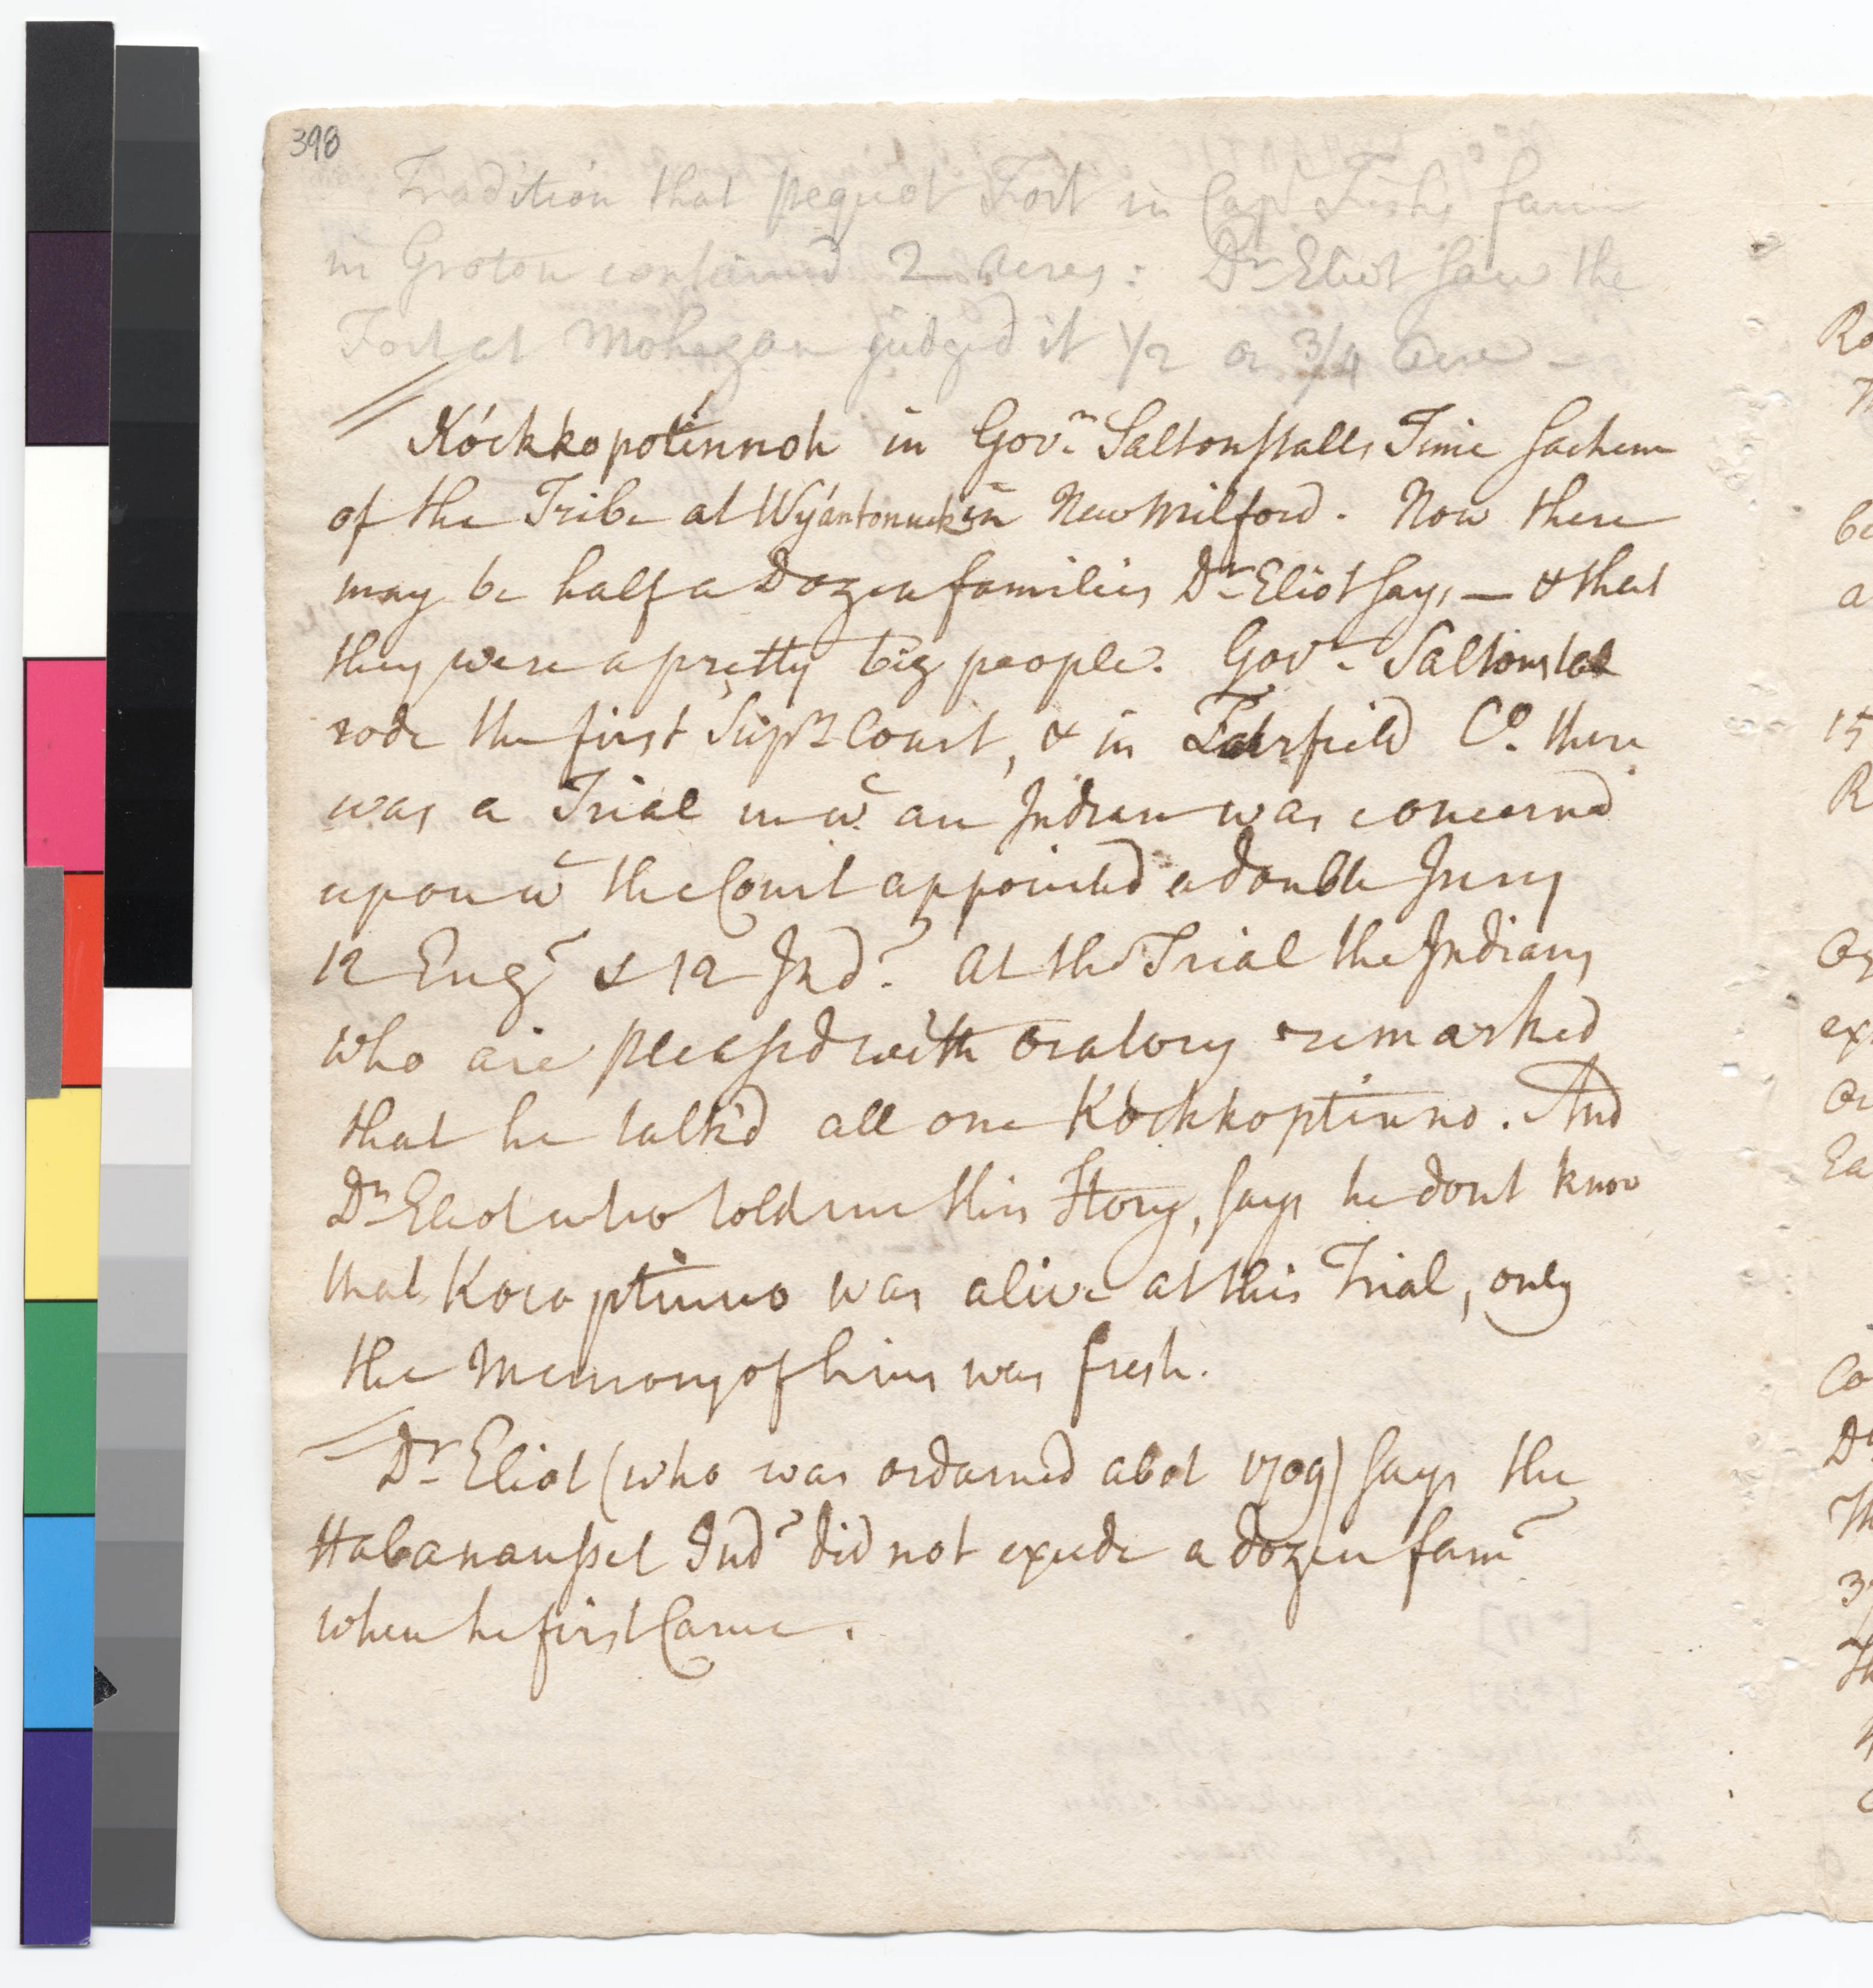 398
Tradition that pequot Fort in Capt Fishs farm
in Groton contained 2 Acres: Dr Eliot saw the
Fort at Mohegan judged it 1/2 or 3/4 Acre —
Kóckkopotínnoh in Govr Saltonstalls Time Sachem
of the Tribe at Wyántonuck in New Milford. Now there
may be half a Dozen families Dr Eliot says, — & that
they were a pretty big people. Govr Saltonstal
rode the first Supr Court, & in Fairfield Co. there
was a Trial in wc an Indian was concernd
upon wc the Court appointed a double Jury
12 Eng & 12 Ind. At the Trial the Indians
who are pleased with oratory remarked
that he talk'd all one Kockkoptinno. And
Dr Eliot who told me this Story, says he dont know
that Kocoptinno was alive at this Trial, only
the Memory of him was fresh.
Dr Eliot (who was ordained abot 1709) says the
Habanauset Ind did not exceede a dozen fam
when he first Came.
Ro
be
a
15
R
ex
Or
Ea
Co